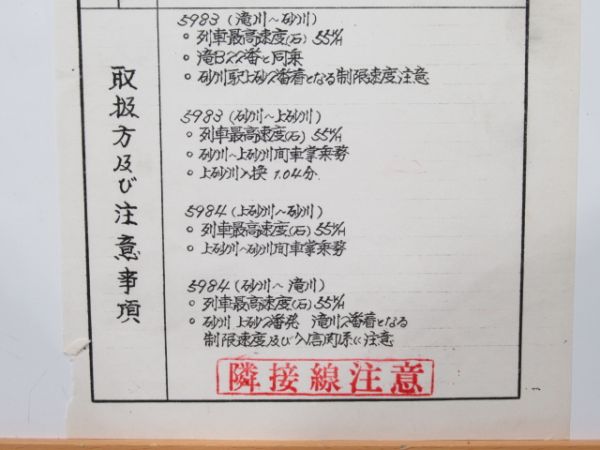 取扱方及び注意事項
5983 (滝川〜砂川)
○ 列車最高速度(石) 55㎞/H
○ 滝B22番と同乗
○ 砂川駅上砂2番着となる制限速度注意
5983 (砂川〜上砂川)
○ 列車最高速度(石) 55㎞/H
○ 砂川〜上砂川間車掌乗務
○ 上砂川入換 1.04分
5984 (上砂川〜砂川)
○ 列車最高速度(石) 55㎞/H
○ 上砂川〜砂川間車掌乗務
5984 (砂川〜滝川)
○ 列車最高速度(石) 55㎞/H
○ 砂川 上砂2番発 滝川2番着となる
制限速度及び入信関係に注意
隣接線注意